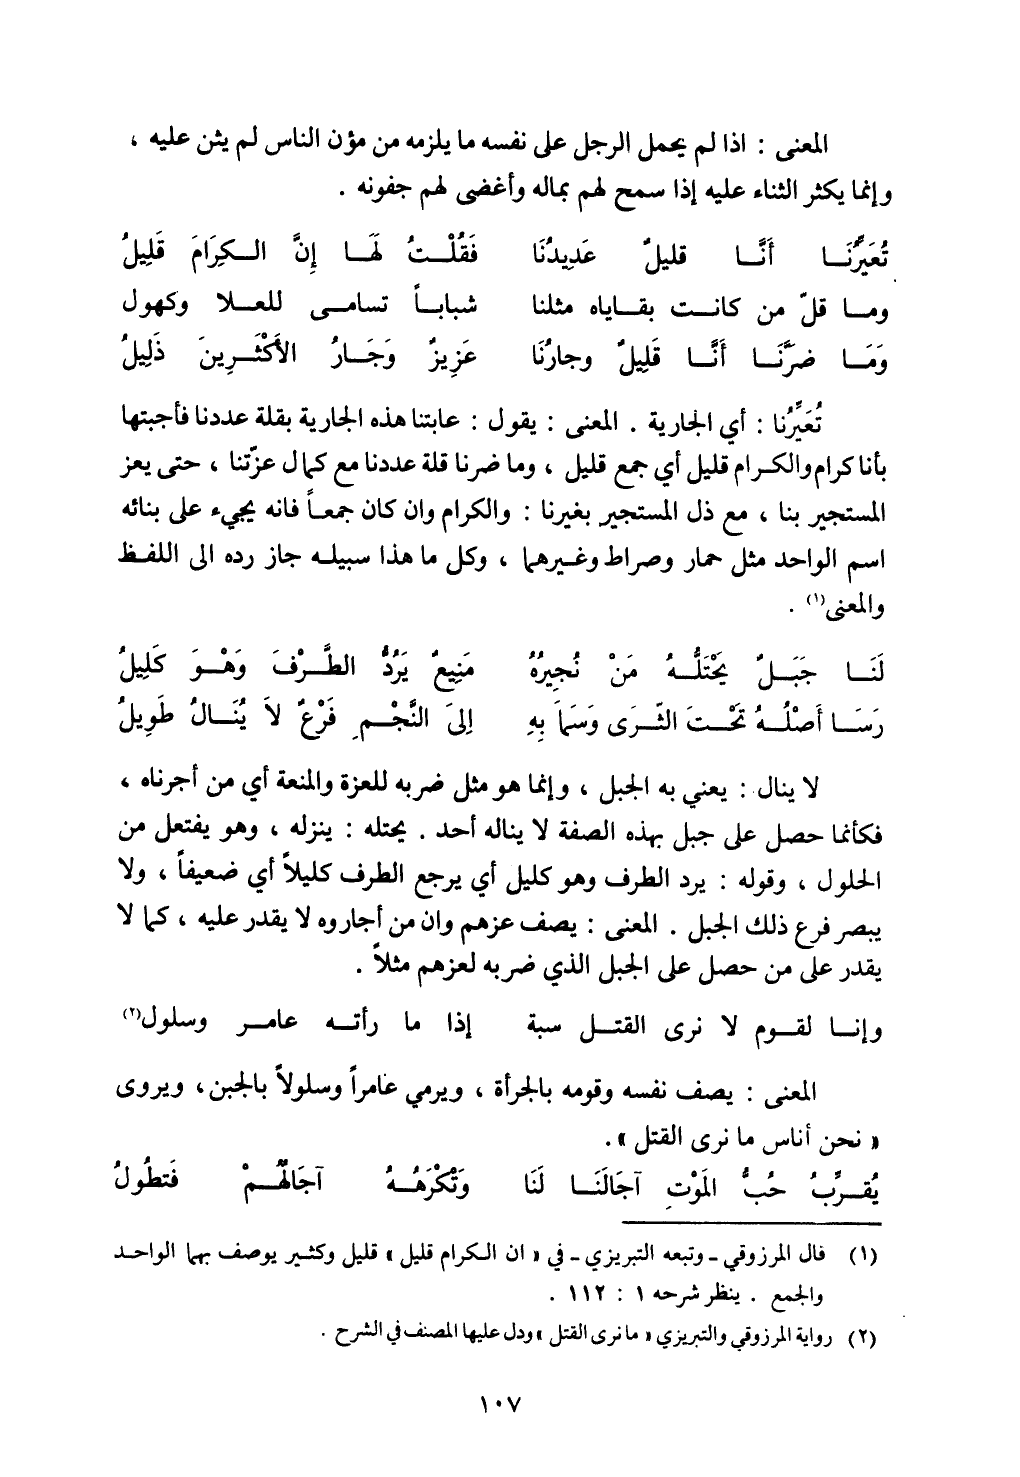 المعنى : اذا لم يحمل الرجل على نفسه ما يلزمه من مؤن الناس لم يثن عليه ،
وإنما يكثر الثناء عليه إذا سمح لهم بماله وأغضى لهم جفونه .
تُعَيِّرُنَا أَنَّا قليلٌ عَدِيدُنَا فَقُلْتُ لَهَا إِنَّ الكِرَامَ قَلِيلُ
وما قلّ من كانت بقاياه مثلنا شباباً تسامى للعلا وكهول
وَمَا ضَرَّنَا أَنَّا قَلِيلٌ وجارُنَا عَزِيزٌ وَجَارُ الأَكْثَرِينَ ذَلِيلُ
تُعَيِّرُنا : أي الجارية . المعنى : يقول : عابتنا هذه الجارية بقلة عددنا فأجبتها
بأنا كرام والكرام قليل أي جمع قليل ، وما ضرنا قلة عددنا مع كمال عزّتنا ، حتى يعز
المستجير بنا ، مع ذل المستجير بغيرنا : والكرام وان كان جمعاً فانه يجيء على بنائه
اسم الواحد مثل حمار وصراط وغيرهما ، وكل ما هذا سبيله جاز رده الى اللفظ
والمعنى(١) .
لَنَا جَبَلٌ يَحْتَلُّهُ مَنْ نُجِيرُهُ مَنِيعٌ يَرُدُّ الطَّرْفَ وَهْوَ كَلِيلُ
رَسَا أَصْلُهُ تَحْتَ الثَّرَى وَسَمَا بِهِ إلىَ النَّجْمِ فَرْعٌ لاَ يُنَالُ طَوِيلُ
لا ينال : يعني به الجبل ، وإنما هو مثل ضربه للعزة والمنعة أي من أجرناه ،
فكأنما حصل على جبل بهذه الصفة لا يناله أحد . يحتله : ينزله ، وهو يفتعل من
الحلول ، وقوله : يرد الطرف وهو كليل أي يرجع الطرف كليلاً أي ضعيفاً ، ولا
يبصر فرع ذلك الجبل . المعنى : يصف عزهم وان من أجاروه لا يقدر عليه ، كما لا
يقدر على من حصل على الجبل الذي ضربه لعزهم مثلاً .
وإنا لقوم لا نرى القتل سبة إذا ما رأته عامر وسلول(٢)
المعنى : يصف نفسه وقومه بالجرأة ، ويرمي عامراً وسلولاً بالجبن، ويروى
« نحن أناس ما نرى القتل ».
يُقرِّبُ حُبُّ المَوْتِ آجَالَنَا لَنَا وَتَكْرَهُهُ آجَالُهُمْ فَتَطُولُ
(١) قال المرزوقي ـ وتبعه التبريزي ـ في « ان الكرام قليل » قليل وكثير يوصف بهما الواحد
والجمع . ينظر شرحه ١ : ١١٢ .
(٢) رواية المرزوقي والتبريزي « ما نرى القتل » ودل عليها المصنف في الشرح .
١٠٧